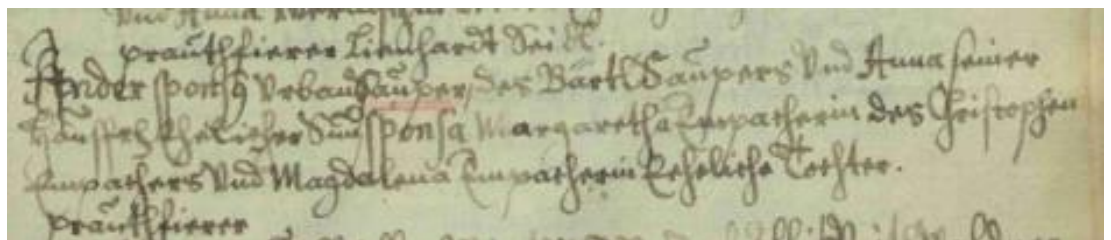 Und Anna
prauthfierer Lienhardt Seidl.
Ander sponsus Urban Hauper, des Bartl Haupers Und Anna seiner
Haussfrh Ehelicher Sun sponsa Margaretha Empacherin des Christophen
Empachers Und Magdalena Empacherin Eheliche Tochter.
prauthfierer